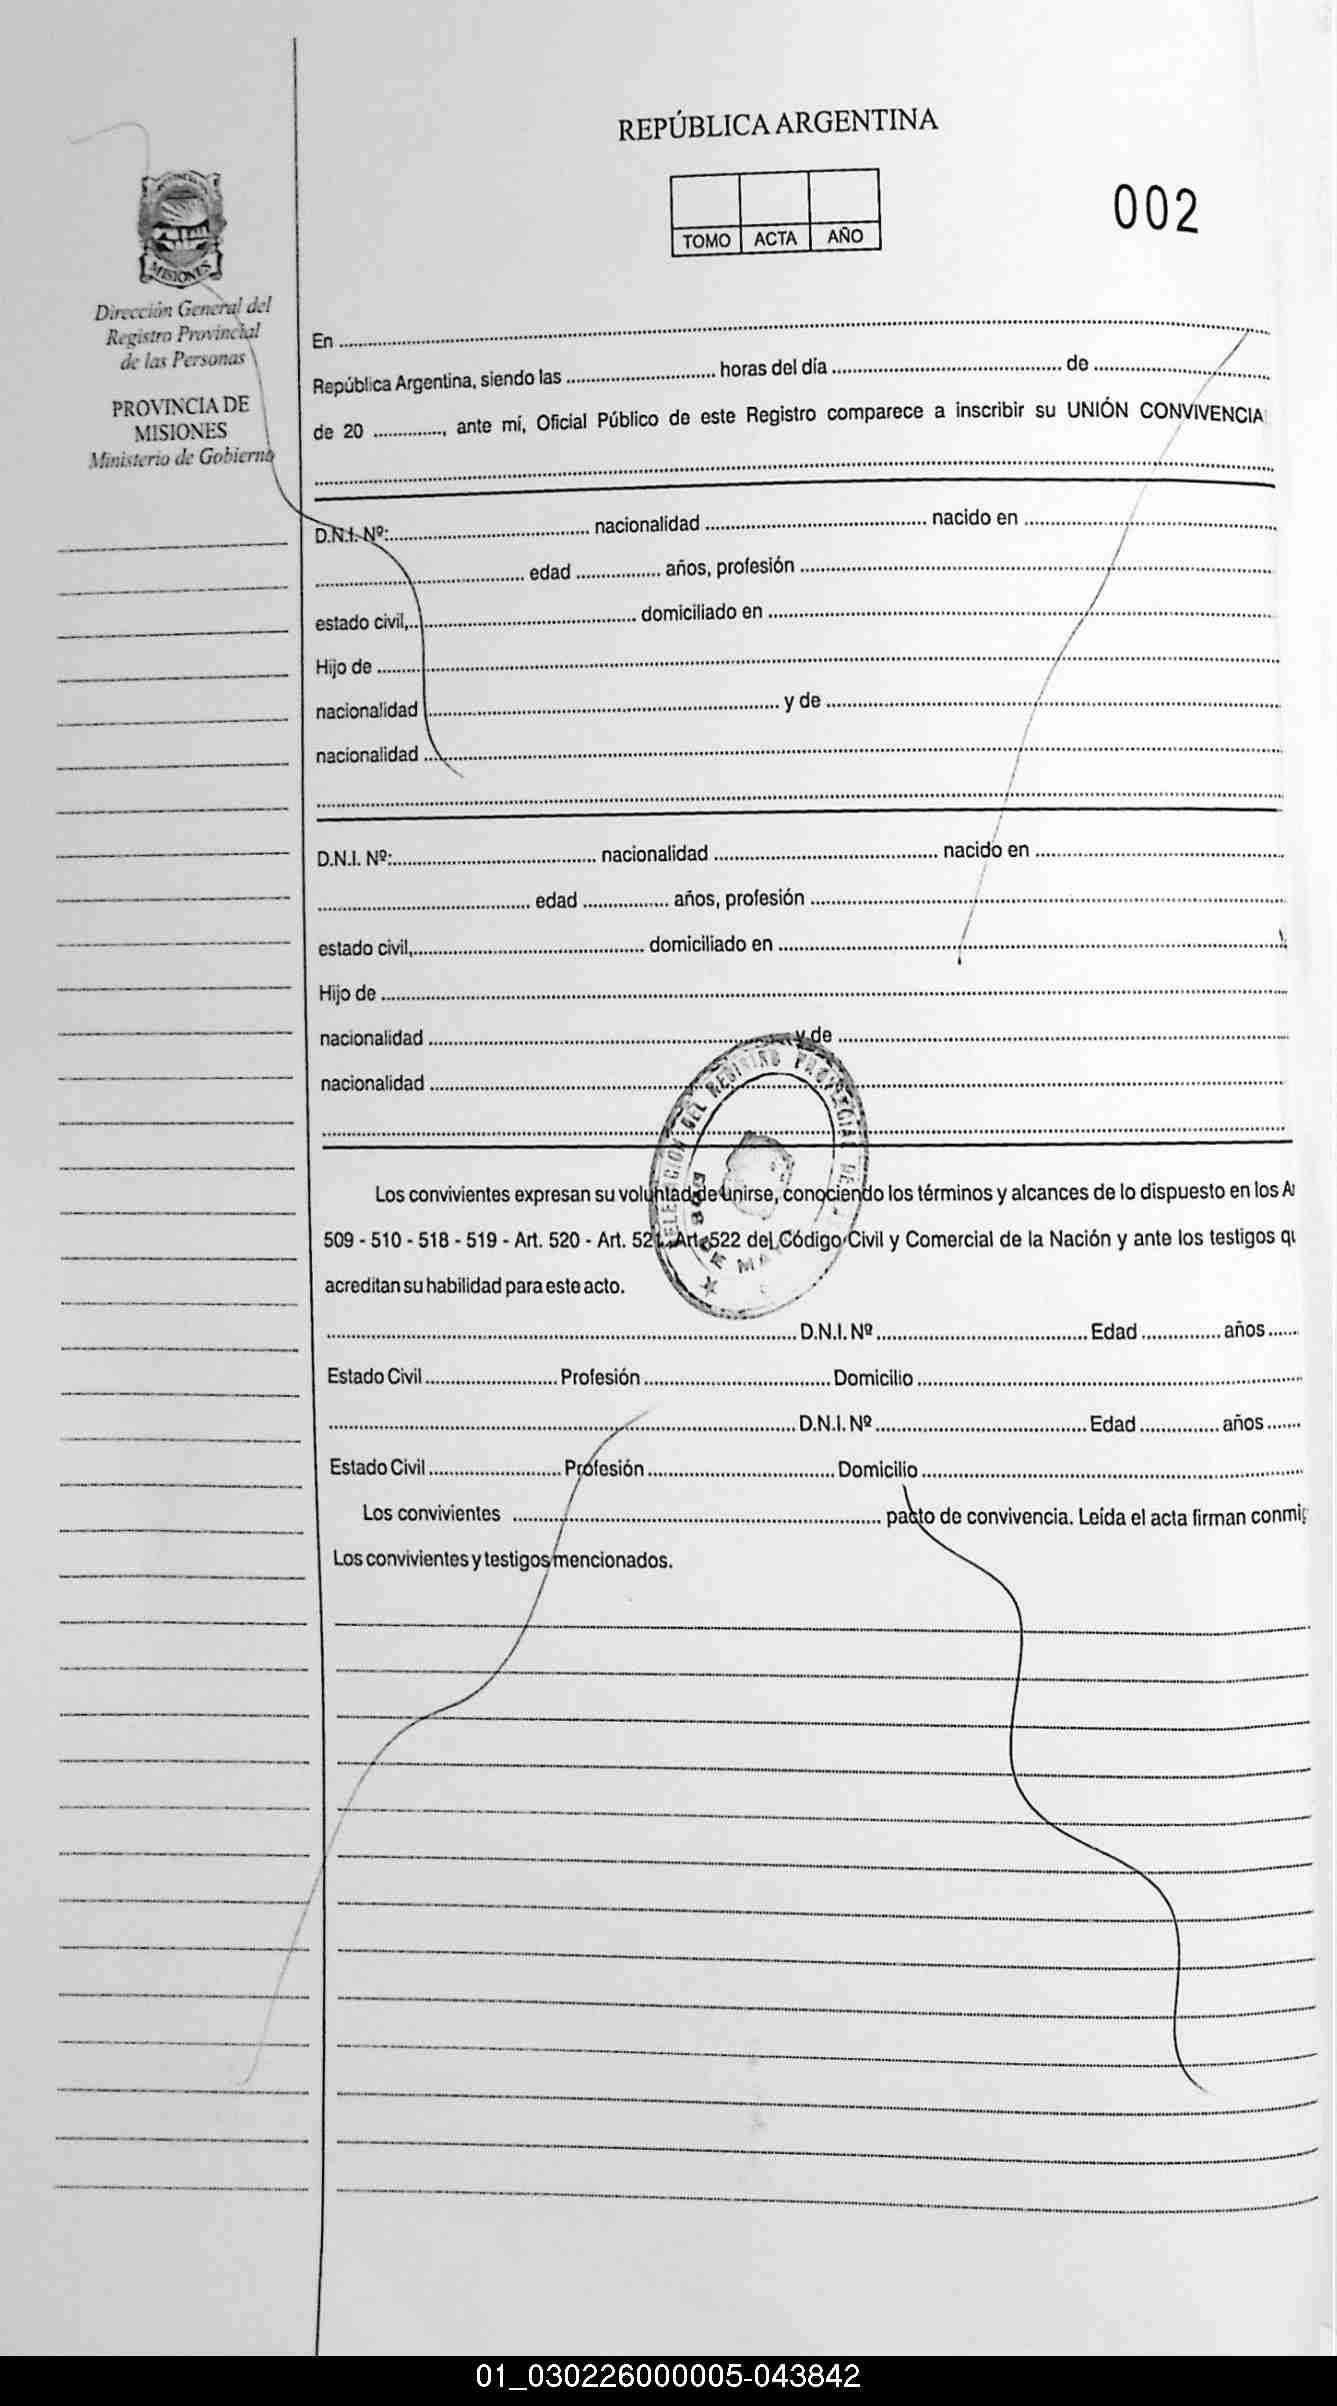 REPÚBLICA ARGENTINA
002
TOMO ACTA AÑO
MISIONES
Dirección General del
Registro Provincial
de las Personas
PROVINCIA DE
MISIONES
Ministerio de Gobierno
En ........................................
República Argentina, siendo las .................... horas del día .................... de ....................
de 20 .............., ante mí, Oficial Público de este Registro comparece a inscribir su UNIÓN CONVIVENCIA
D.N.I. Nº:.................... nacionalidad .................... nacido en ....................
.................... edad ................ años, profesión ....................
estado civil,.................... domiciliado en ....................
Hijo de ....................
nacionalidad .................... y de ....................
nacionalidad ....................
D.N.I. Nº:.................... nacionalidad .................... nacido en ....................
.................... edad ................ años, profesión ....................
estado civil,.................... domiciliado en ....................
Hijo de ....................
nacionalidad .................... y de ....................
nacionalidad ....................
DEL REGISTRO
Los convivientes expresan su voluntad de unirse, conociendo los términos y alcances de lo dispuesto en los A
509 - 510 - 518 - 519 - Art. 520 - Art. 521, Art. 522 del Código Civil y Comercial de la Nación y ante los testigos qu
acreditan su habilidad para este acto.
.................... D.N.I. Nº .................... Edad .............. años ......
Estado Civil .................... Profesión .................... Domicilio ....................
.................... D.N.I. Nº .................... Edad .............. años ......
Estado Civil .................... Profesión .................... Domicilio ....................
Los convivientes .................... pacto de convivencia. Leída el acta firman conmig
Los convivientes y testigos mencionados.
01_030226000005-043842